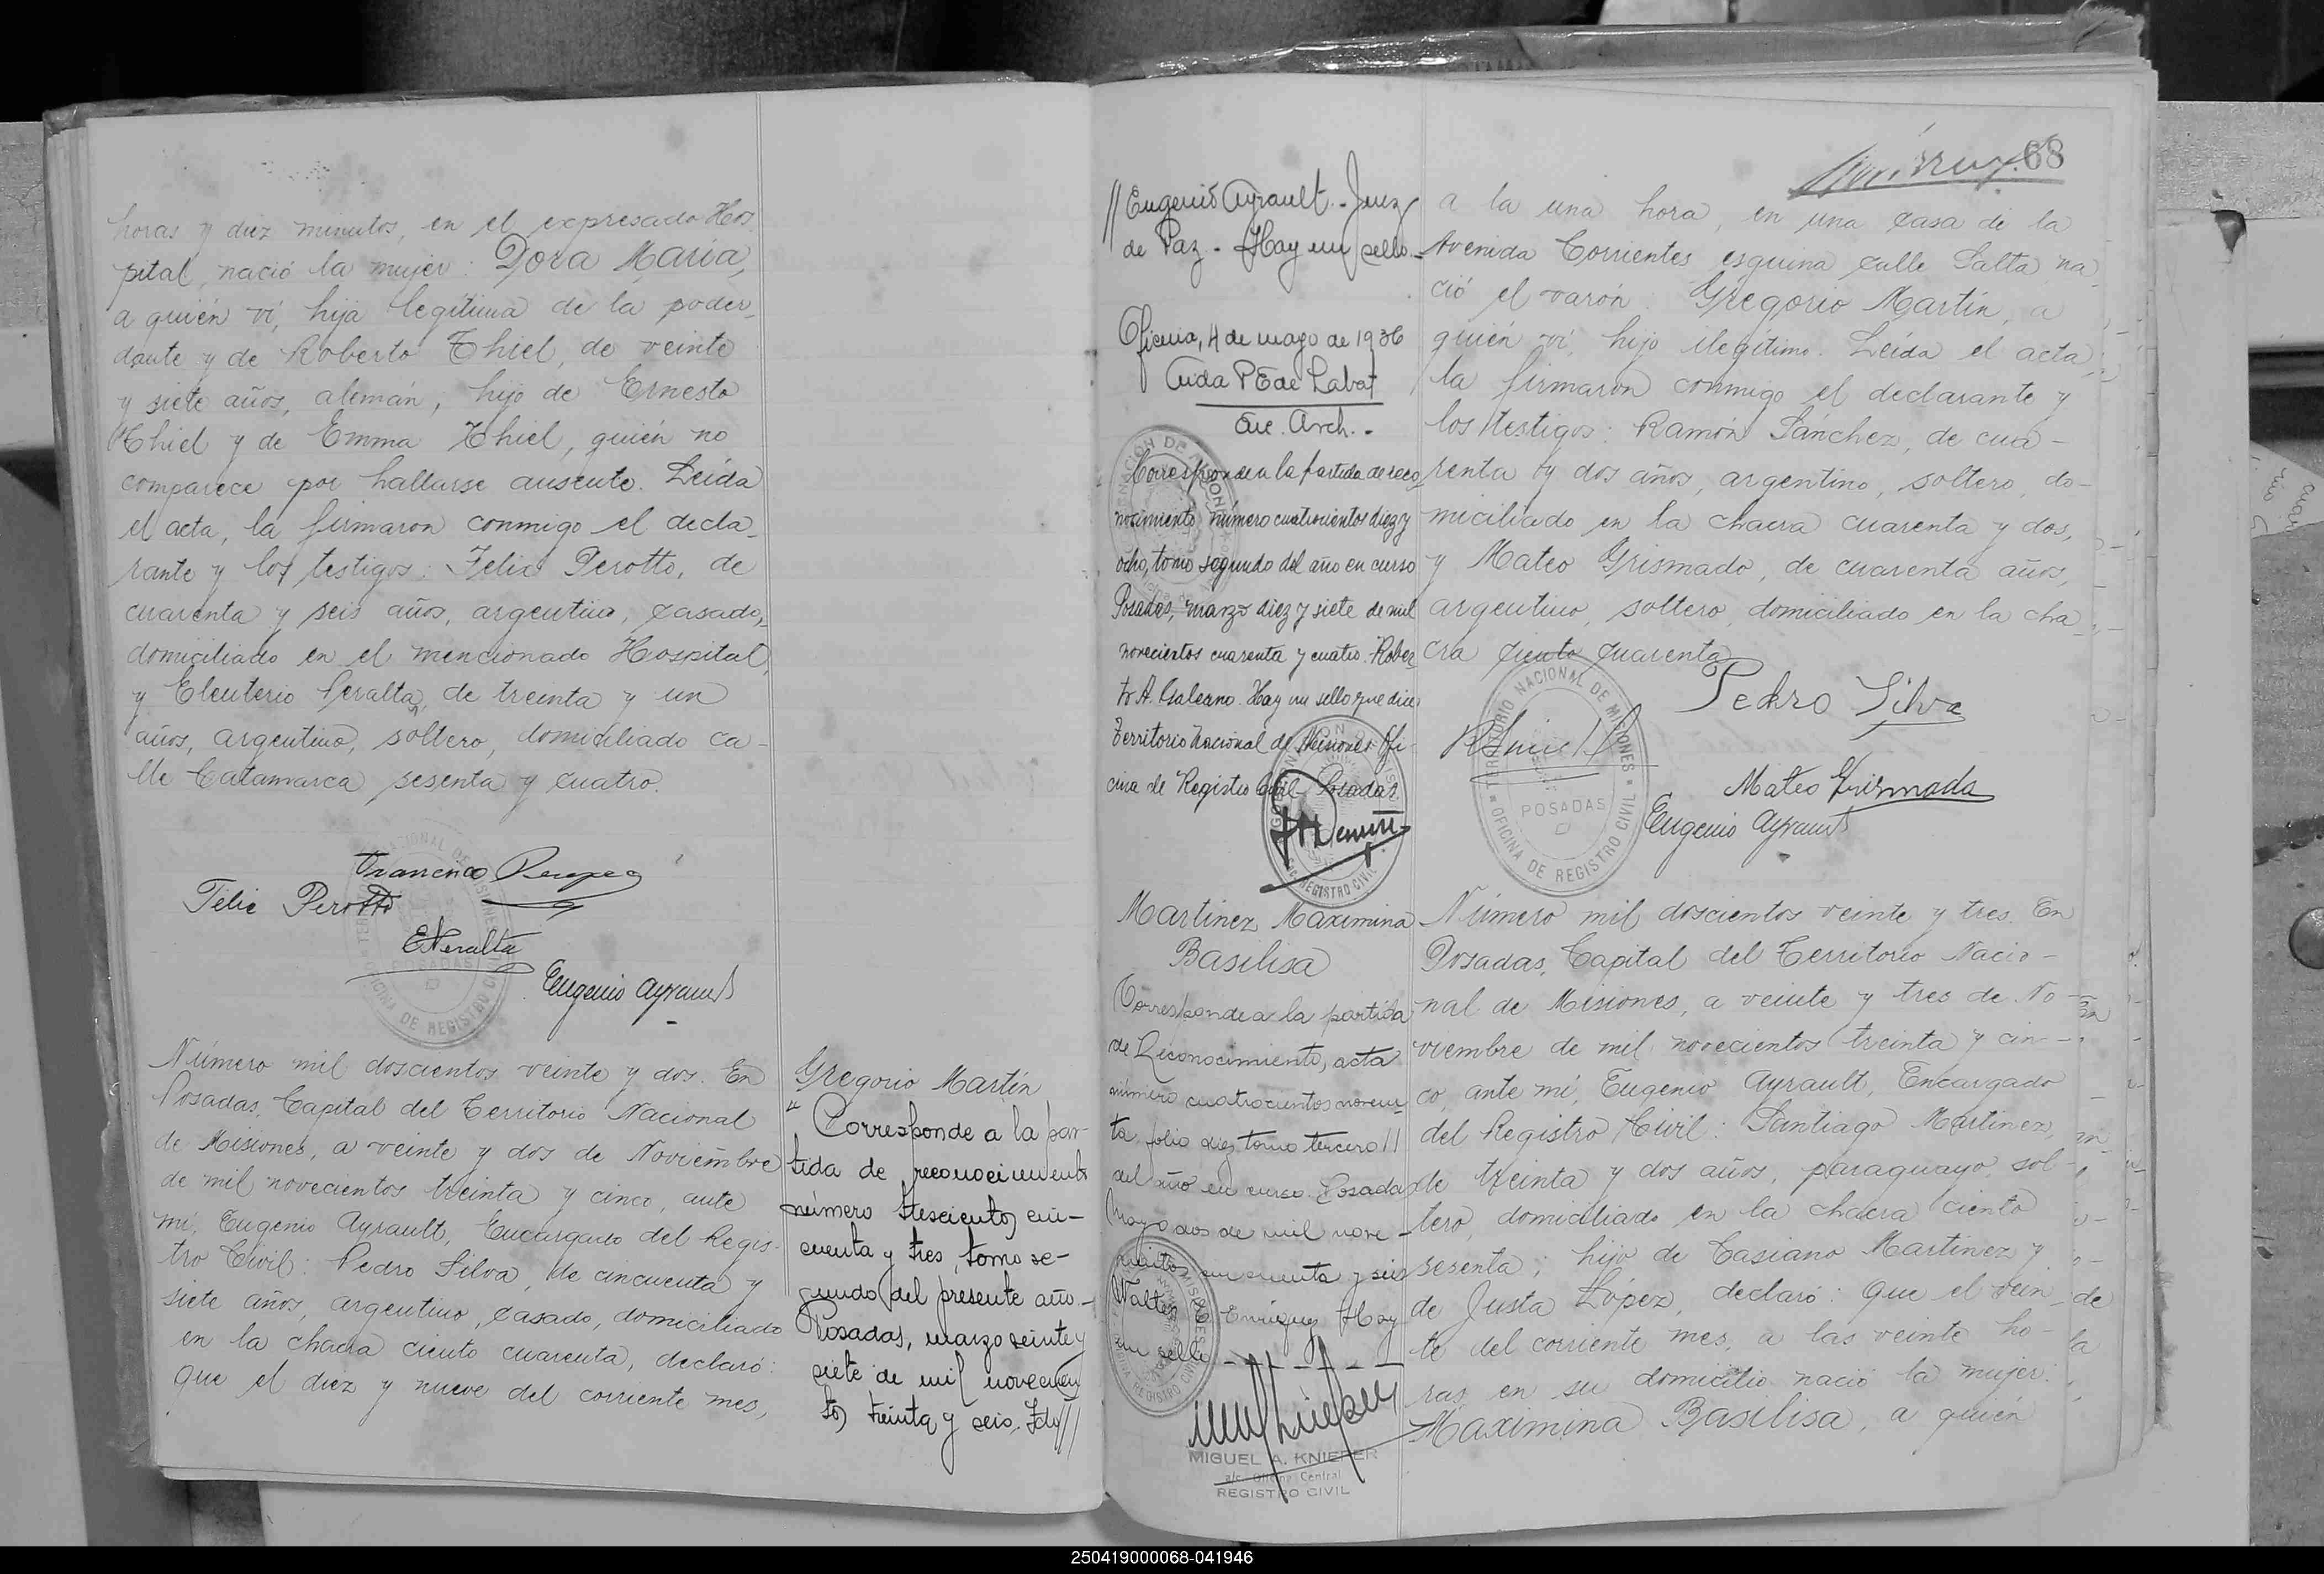 horas y diez minutos, en el expresado Hos
pital, nació la mujer: Dora María,
a quién ví, hija legítima de la poder
dante y de Roberto Thiel, de veinte
y siete años, alemán, hijo de Ernesto
Thiel y de Emma Thiel, quién no
comparece por hallarse ausente. Leída
el acta, la firmaron conmigo el decla
rante y los testigos: Felix Perotto, de
cuarenta y seis años, argentino, casado,
domiciliado en el mencionado Hospital,
y Eleuterio Peralta, de treinta y un
años, argentino, soltero, domiciliado ca-
lle Catamarca sesenta y cuatro.
Francisco
Felix Perotto
EPeralta
Eugenio Ayrault
Número mil doscientos veinte y dos. En
Posadas, Capital del Territorio Nacional
de Misiones, a veinte y dos de Noviembre
de mil novecientos treinta y cinco, ante
mí, Eugenio Ayrault, Encargado del Regis-
tro Civil: Pedro Silva, de cincuenta y
siete años, argentino, casado, domiciliado
en la chacra ciento cuarenta, declaró:
que el diez y nueve del corriente mes,
Gregorio Martín
" Corresponde a la par-
tida de reconocimiento
número trescientos cin-
cuenta y tres, tomo se-
gundo del presente año.-
Posadas, marzo veinte y
siete de mil novecien
tos treinta y seis. Fdo//
68
// Eugenio Ayrault.- Juez
de Paz - Hay un sello.-
Oficina, 4 de mayo de 1936
Aida P E de Labat
Arch. -
Corresponde a la partida de reco
nocimiento número cuatrocientos diez y
ocho, tomo segundo del año en curso
Posadas, marzo diez y siete de mil
novecientos cuarenta y cuatro. Rober
to A. Galeano. Hay un sello que dice
Territorio Nacional de Misiones Ofi-
cina de Registro Civil Posadas
a la una hora, en una casa de la
Avenida Corrientes esquina calle Salta, na
ció el varón: Gregorio Martín, a
quién ví, hijo ilegítimo. Leída el acta,
la firmaron conmigo el declarante y
los testigos: Ramón Sánchez, de cua-
renta y dos años, argentino, soltero, do-
miciliado en la chacra cuarenta y dos,
y Mateo Grismado, de cuarenta años,
argentino, soltero, domiciliado en la cha
cra ciento cuarenta
Pedro Silva
Mateo Grismado
Eugenio Ayrault
TERRITORIO NACIONAL DE MISIONES
POSADAS
OFICINA DE REGISTRO CIVIL
Martinez Maximina
Basilisa
Corresponde a la partida
de Reconocimiento, acta
número cuatrocientos noven-
ta folio diez tomo tercero //
del año en curso. Posadas
Mayo dos de mil nove-
cientos cincuenta y seis
Walter Enriquez Hay
un sello - - - - -
MIGUEL A. KNIEPER
a/c. Oficina Central
REGISTRO CIVIL
Número mil doscientos veinte y tres. En
Posadas, Capital del Territorio Nacio-
nal de Misiones, a veinte y tres de No-
viembre de mil novecientos treinta y cin-
co, ante mí, Eugenio Ayrault, Encargado
del Registro Civil: Santiago Martinez,
de treinta y dos años, paraguayo, sol-
tero, domiciliado en la chacra ciento
sesenta; hijo de Casiano Martinez y
de Justa López, declaró: Que el vein-
te del corriente mes, a las veinte ho-
ras en su domicilio nació la mujer:
Maximina Basilisa, a quién
250419000068-041946